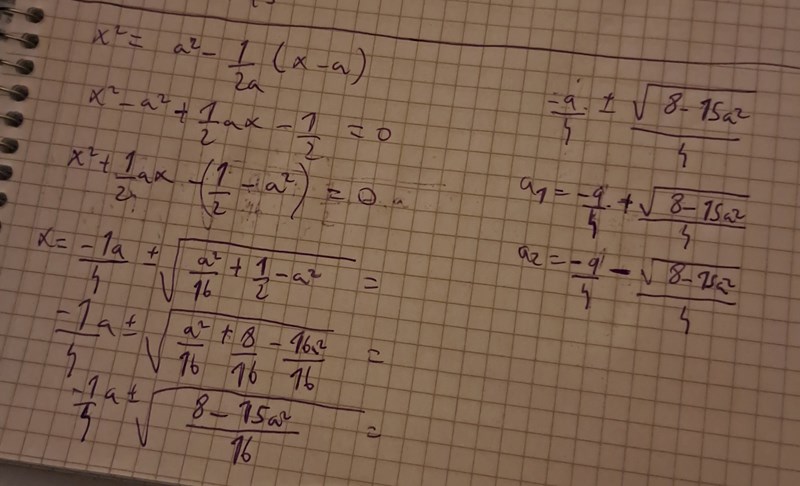 x² = a² - 1/2a (x-a)
x² - a² + 1/2 ax - 1/2 = 0
x² + 1/2 ax - (1/2 - a²) = 0
x = -1a/4 ± √(a²/16 + 1/2 - a²) =
-1/4 a ± √(a²/16 + 8/16 - 16a²/16) =
-1/4 a ± √((8-15a²)/16) =
-a/4 ± √(8-15a²)/4
a₁ = -a/4 + √(8-15a²)/4
a₂ = -a/4 - √(8-15a²)/4